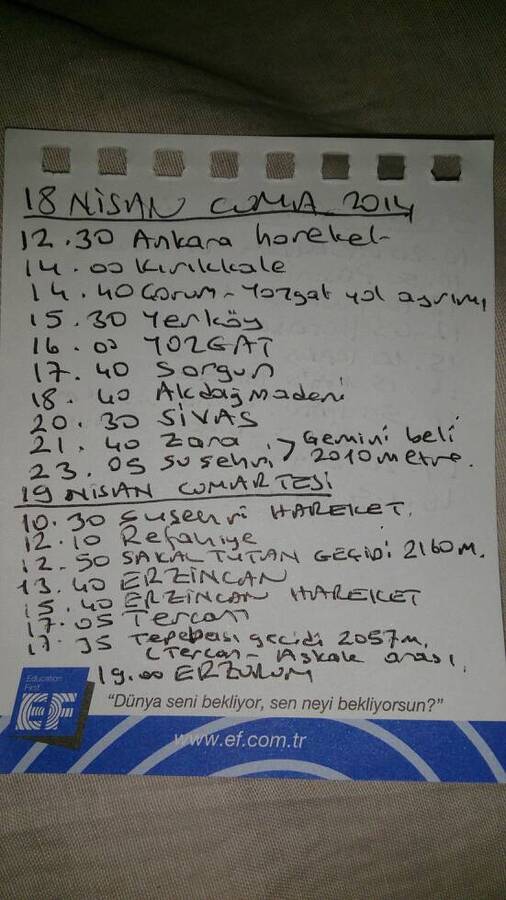 18 NİSAN CUMA 2014
12.30 Ankara hareket
14.00 Kırıkkale
14.40 Çorum - Yozgat yol ayrımı
15.30 Yerköy
16.00 YOZGAT
17.40 Sorgun
18.40 Akdağmadeni
20.30 SİVAS
21.40 Zara > Gemini beli
23.05 Suşehri 2010 metre.
19 NİSAN CUMARTESİ
10.30 Suşehri HAREKET.
12.10 Refahiye
12.50 SAKALTUTAN GEÇİDİ 2160 M.
13.40 ERZİNCAN
15.40 ERZİNCAN HAREKET
17.05 Tercan
17.35 Tepebaşı geçidi 2057 m.
(Tercan - Aşkale arası.
19.00 ERZURUM
Education
First
EF
"Dünya seni bekliyor, sen neyi bekliyorsun?"
www.ef.com.tr